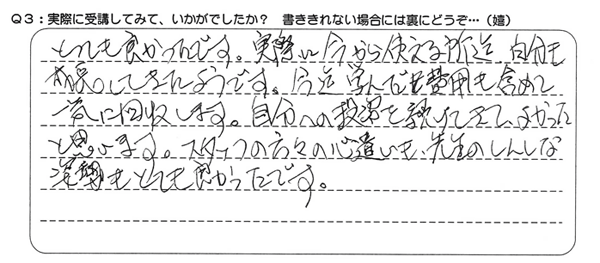 Q3:実際に受講してみて、いかがでしたか? 書ききれない場合には裏にどうぞ…(嬉)
とても良かったです。実際に今から使える所迄、自分も
成長してきたようです。今迄学んだ費用も含めて
一気に回収します。自分への投資を続けてきて、よかった
と思います。スタッフの方々の心遣いも、先生のしんしな
もとても良かったです。